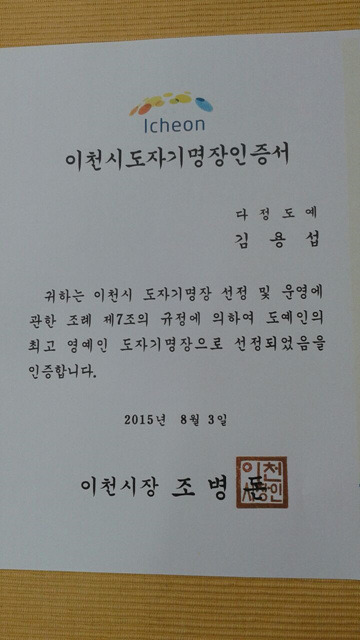 Icheon
이천시도자기명장인증서
다정도예
김용섭
귀하는 이천시 도자기명장 선정 및 운영에
관한 조례 제7조의 규정에 의하여 도예인의
최고 영예인 도자기명장으로 선정되었음을
인증합니다.
2015년 8월 3일
이천시장 조병돈
이천
시장인